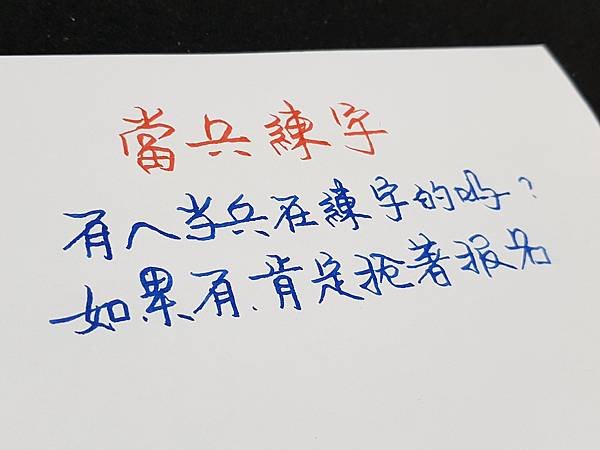 當兵練字
有人当兵在練字的吗?
如果有.肯定抢著报名